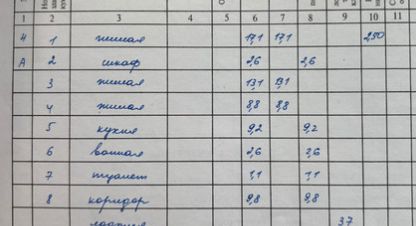 1 2 3 4 5 6 7 8 9 10 11
4 1 жилая 17,1 17,1 250
А 2 шкаф 2,6 2,6
3 жилая 13,1 13,1
4 жилая 8,8 8,8
5 кухня 9,2 9,2
6 ванная 2,6 2,6
7 туалет 1,1 1,1
8 коридор 9,8 9,8
3,7